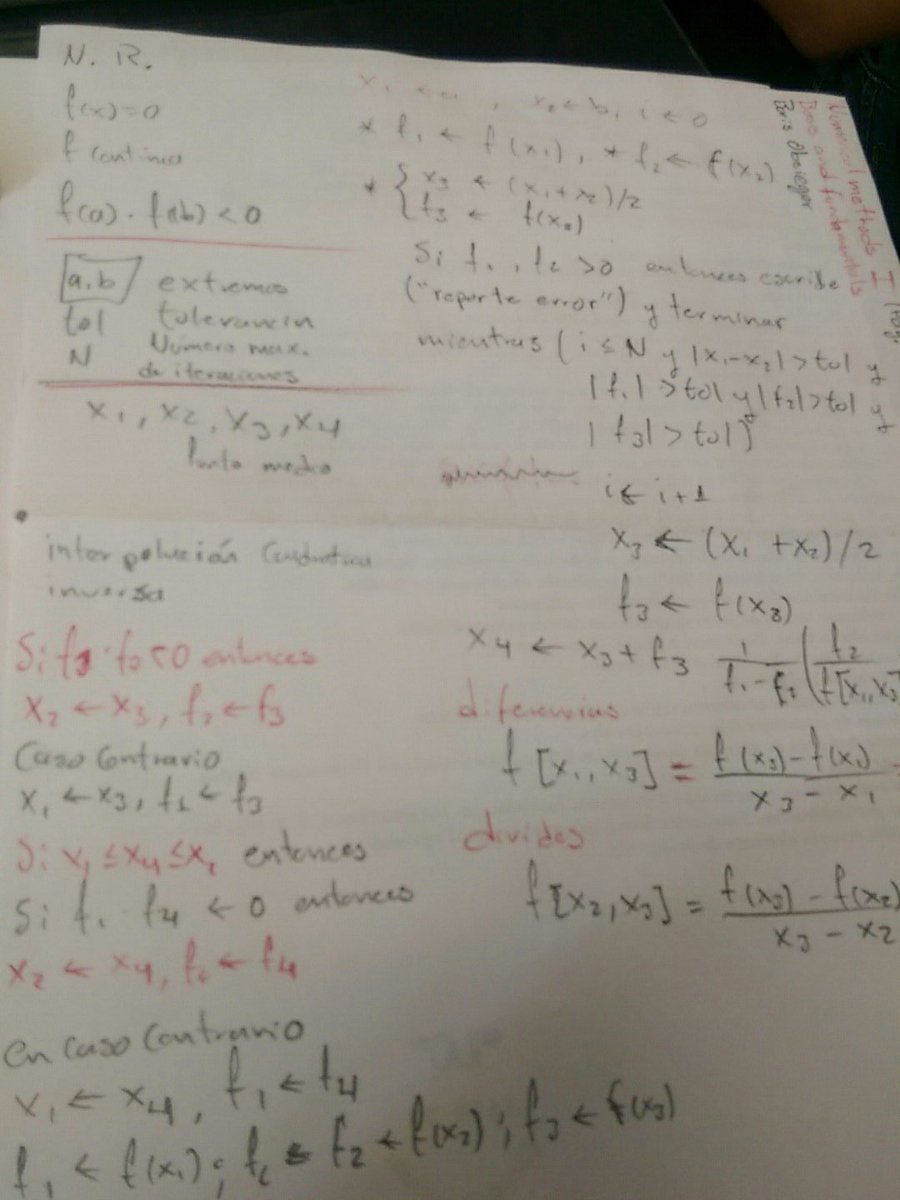 N. R.
f(x)=0
f continua
f(a) · f(b) < 0
a,b extremos
tol tolerancia
N Número max.
de iteraciones
x1, x2, x3, x4
Punto medio
interpolución Cuadratica
inversa
Si f3 · f0 < 0 entonces
x2 ← x3, f2 ← f3
Caso Contrario
x1 ← x3, f1 ← f3
Si x1 ≤ x4 ≤ x2 entonces
Si f1 · f4 < 0 entonces
x2 ← x4, f2 ← f4
en caso Contrario
x1 ← x4, f1 ← f4
f1 ← f(x1); f2 ← f(x2); f3 ← f(x3)
x1 ← a, x2 ← b, i ← 0
* f1 ← f(x1), * f2 ← f(x2)
* { x3 ← (x1+x2)/2
f3 ← f(x3)
Si f1, f2 > 0 entonces escribe
("reporte error") y terminar
mientras (i ≤ N y |x1-x2| > tol y
|f1| > tol y |f2| > tol y
|f3| > tol)
i ← i+1
x3 ← (x1 + x2)/2
f3 ← f(x3)
x4 ← x3 + f3 1/(f1-f2) (f2/f[x1,x3]
diferencias
f[x1,x3] = (f(x3)-f(x1))/(x3-x1)
dividas
f[x2,x3] = (f(x3)-f(x2))/(x3-x2)
Numerical methods I
and fundamentals
Boris Obsieger